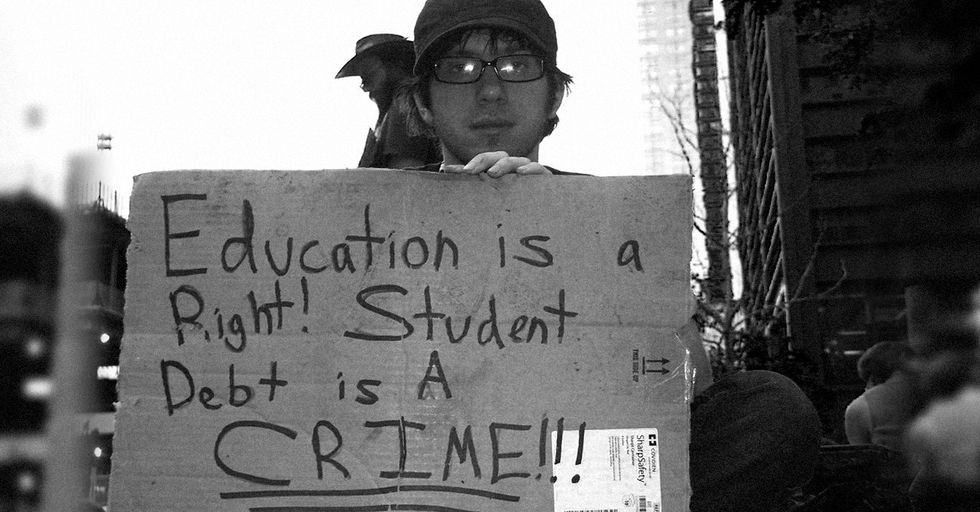 Education is a
Right! Student
Debt is A
CRIME!!!
THIS SIDE UP
COVIDIEN
SharpSafety